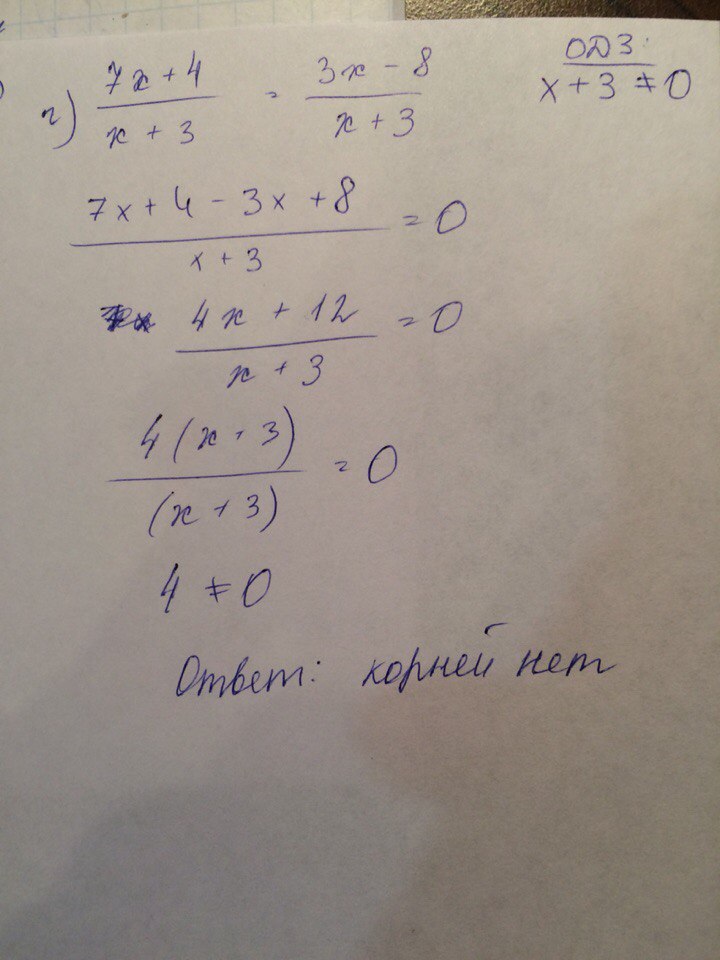 ОДЗ:
x + 3 ≠ 0
г) (7x + 4)/(x + 3) = (3x - 8)/(x + 3)
(7x + 4 - 3x + 8)/(x + 3) = 0
(4x + 12)/(x + 3) = 0
4(x + 3)/(x + 3) = 0
4 ≠ 0
Ответ: корней нет